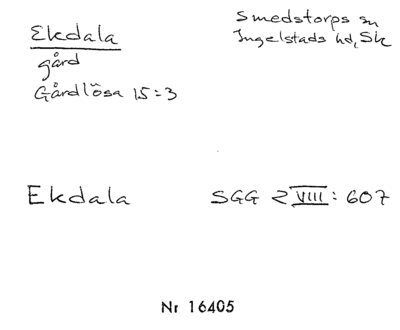 Ekdala
gård
Gårdlösa 15:3
Smedstorps sn
Ingelstads hd, Sk
Ekdala
SGG 2 VIII: 607
Nr 16405